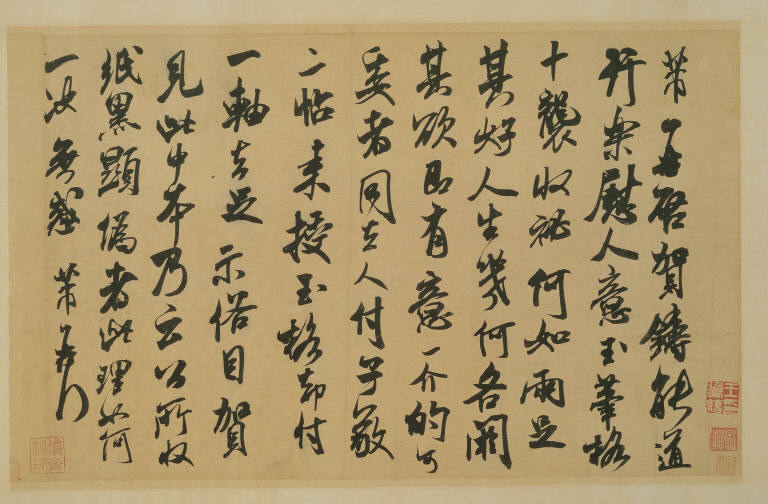 芾一再啓賀鑄能道
行樂慰人意玉筆格
十襲收祕何如兩足
其好人生幾何各閼
其欲即有意一介的可
委者同去人付子敬
二帖来授玉格却付
一軸去足示俗目賀
見此中本乃云公所收
紙黑顯偽者此理如何
一決無惑芾再行